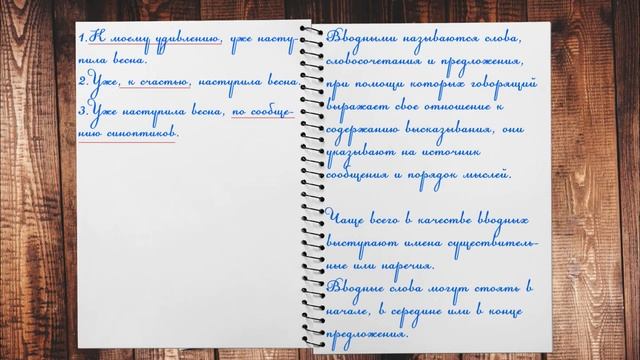 1. К моему удивлению, уже насту-
пила весна.
2. Уже, к счастью, наступила весна.
3. Уже наступила весна, по сообще-
нию синоптиков.
Вводными называются слова,
словосочетания и предложения,
при помощи которых говорящий
выражает свое отношение к
содержанию высказывания, они
указывают на источник
сообщения и порядок мыслей.
Чаще всего в качестве вводных
выступают имена существитель-
ные или наречия.
Вводные слова могут стоять в
начале, в середине или в конце
предложения.